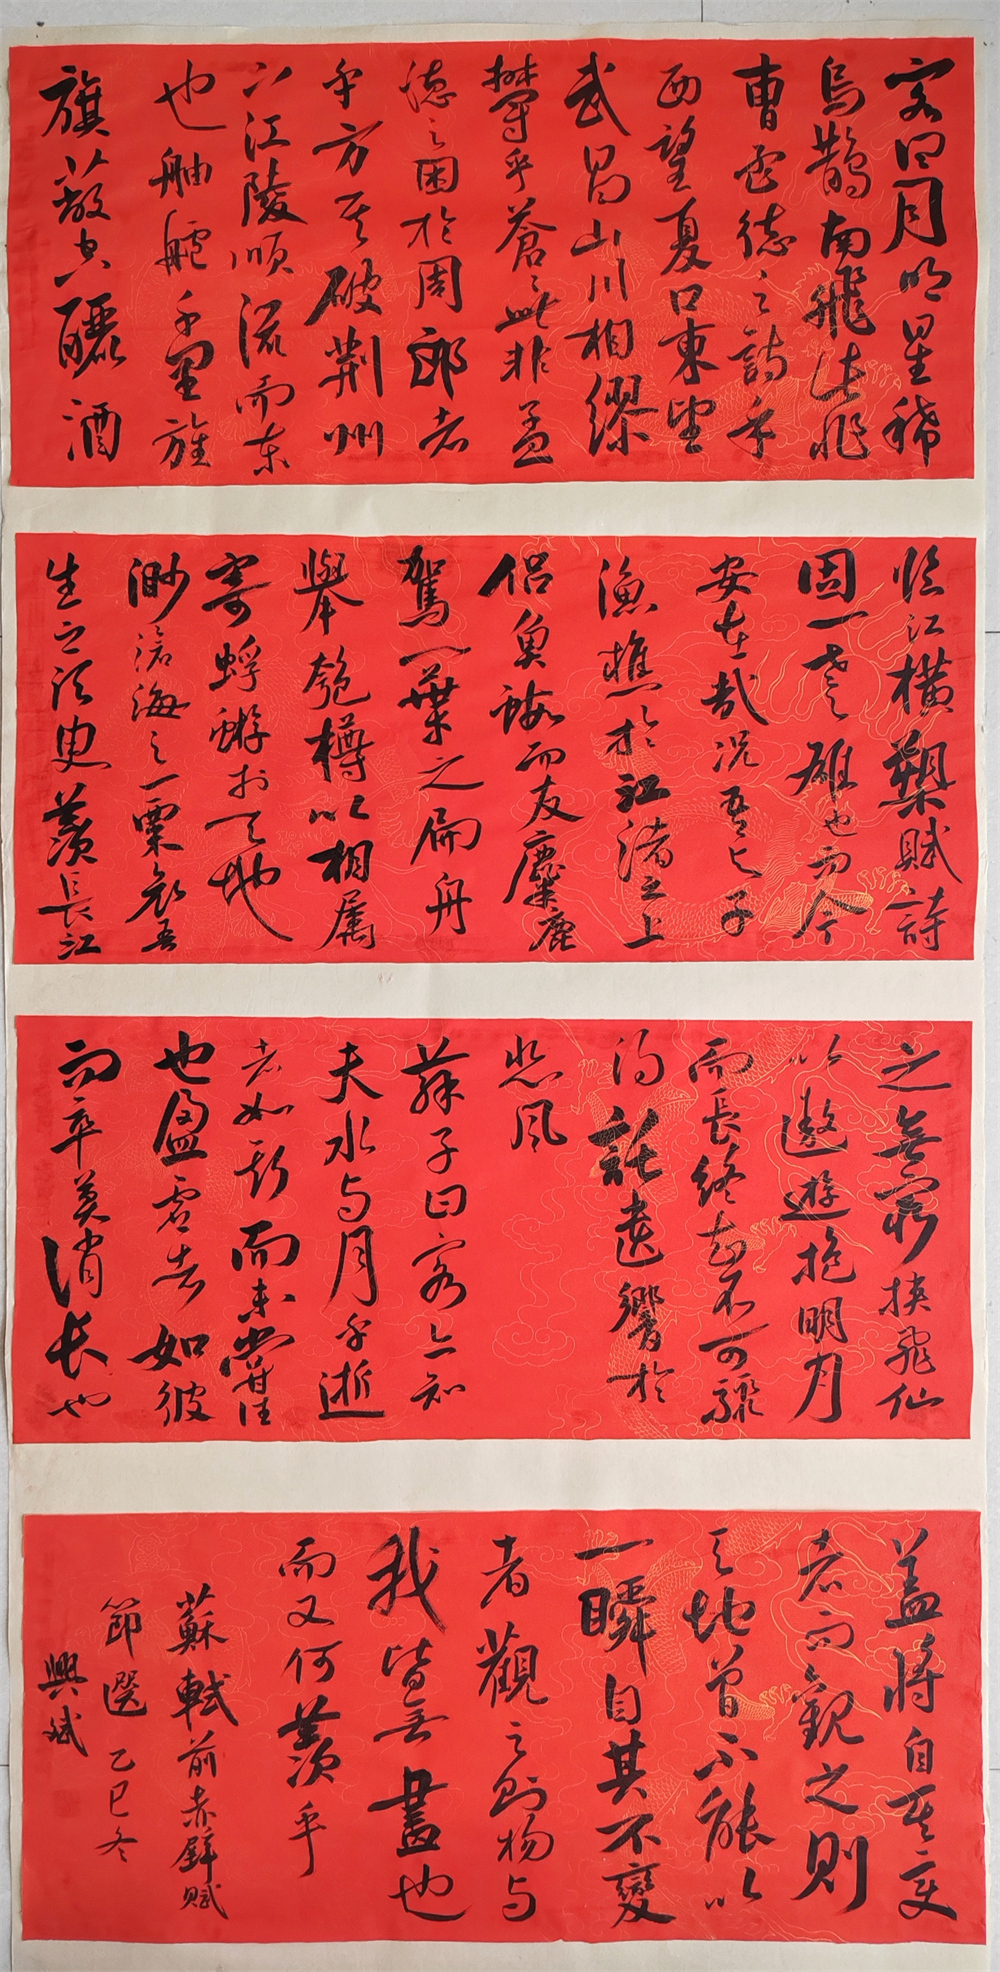 客曰月明星稀
烏鵲南飛此非
曹孟德之詩乎
西望夏口東望
武昌山川相繆
欝乎蒼蒼此非孟
德之困於周郎者
乎方其破荆州
下江陵順流而東
也舳艫千里旌
旗蔽空釃酒
臨江橫槊賦詩
固一世之雄也而今
安在哉況吾与子
漁樵於江渚之上
侣魚蝦而友麋鹿
駕一葉之扁舟
舉匏樽以相屬
寄蜉蝣於天地
渺滄海之一粟哀吾
生之須臾羨長江
之無窮挾飛仙
以遨遊抱明月
而長終知不可驟
得託遺響於
悲風
蘇子曰客亦知
夫水与月乎逝
者如斯而未嘗往
也盈虛者如彼
而卒莫消長也
盖將自其變
者而觀之則
天地曾不能以
一瞬自其不變
者觀之則物与
我皆無盡也
而又何羨乎
蘇軾前赤壁賦
節選 乙巳冬
興斌